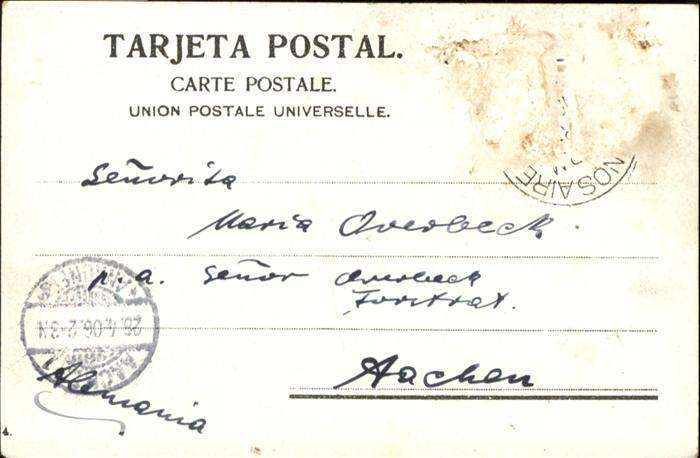 TARJETA POSTAL.
CARTE POSTALE.
UNION POSTALE UNIVERSELLE.
NOS AIRE
Señorita
Maria Overbeck
p. a. Señor Overbeck
Forstrat.
Aachen
Alemania
26.4.06.2-3N
4.